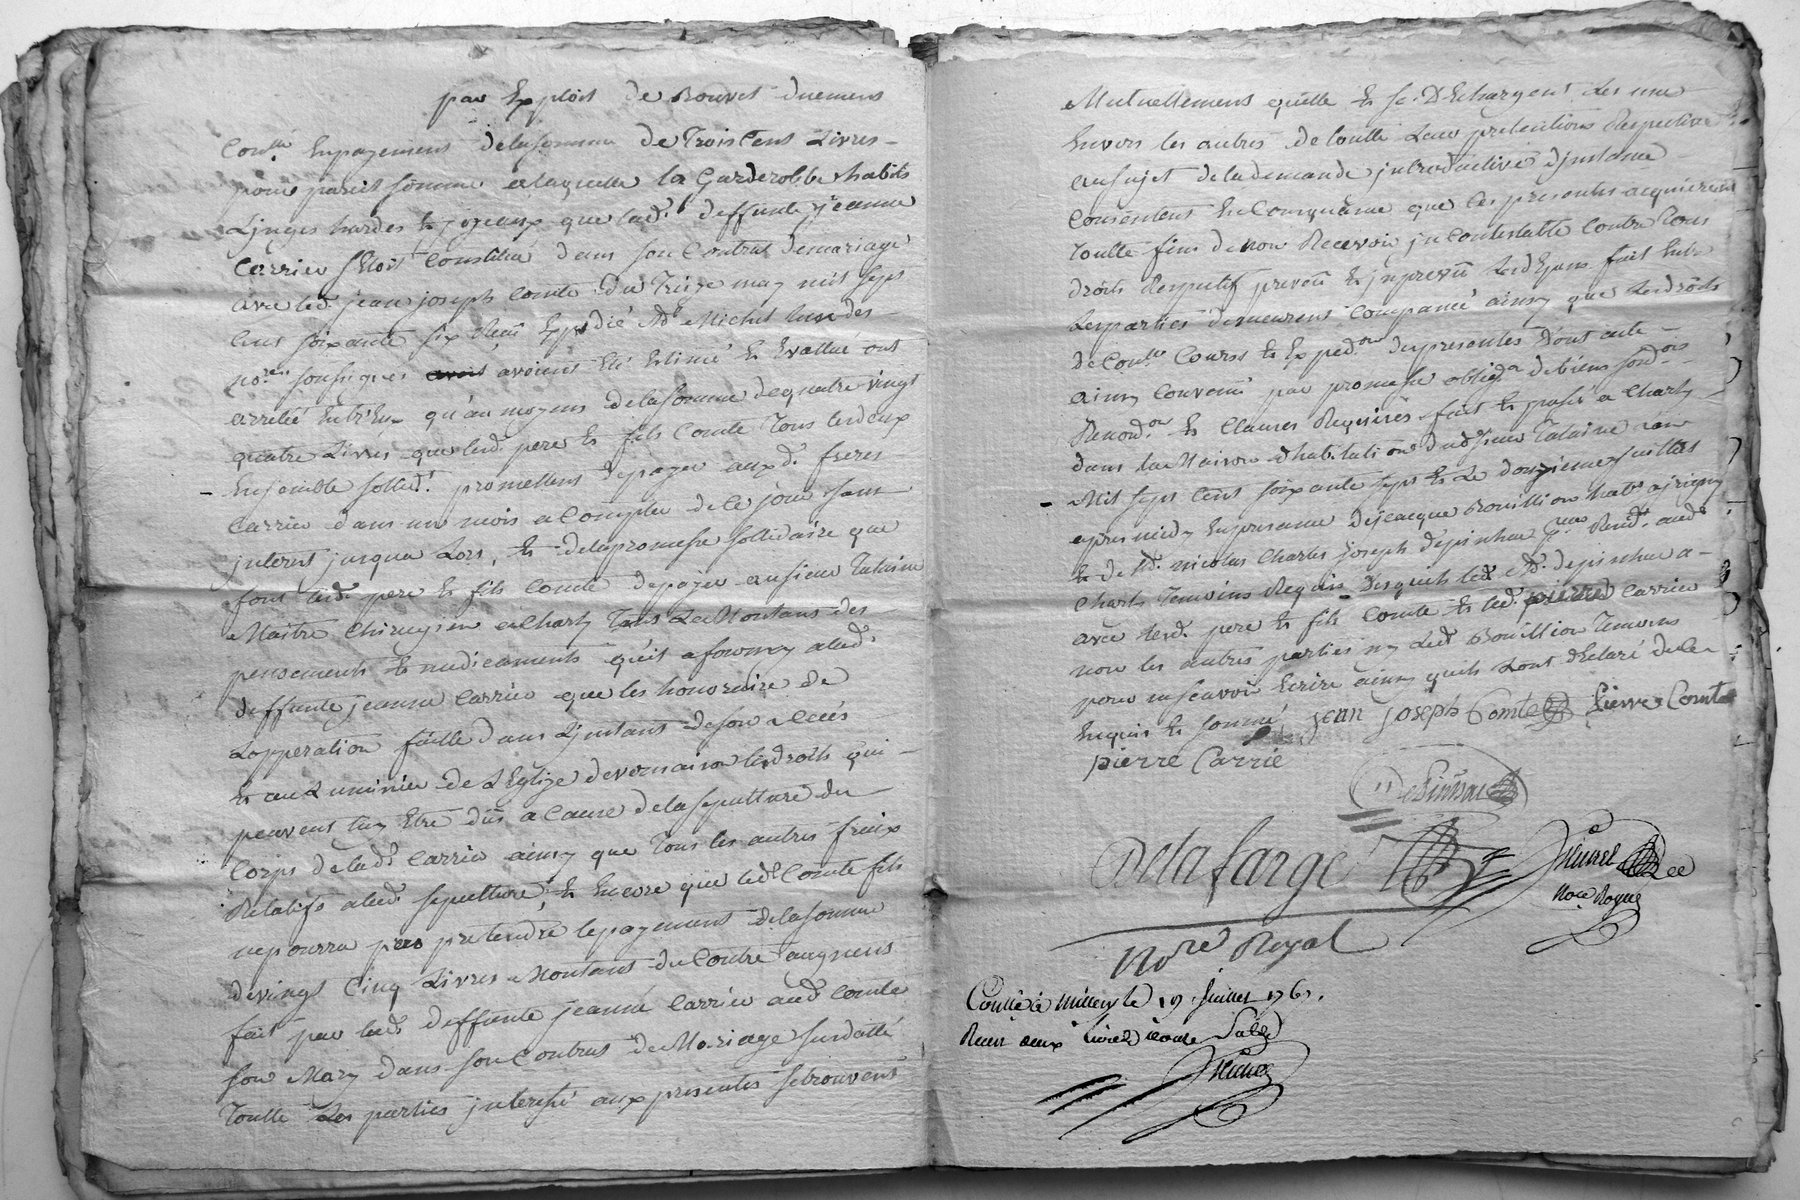 par Exploit de Bouvet duement
Conllé Enpayement delasomme de Trois Cent Livres
pour pareil somme alaquelle la Garderobbe habits
Linges hardes & joyeaux que lade deffunte jeanne
Carrier s'Etoit Constitué dans son Contrat demariage
avec led. jean joseph Comte du Treize may mil sept
Cens soixante six Reçu Expedié Md Michel lun des
nores soussignés avoient Eté Estimé & Evallué ont
arreté Entr'Eux qu'au moyens delasomme dequatre vingt
quatre Livres que lesd. pere & fils Comte Tous lesdeux
Ensemble sollid.t promettent depayer auxd. freres
Carrier dans un mois a Compter de Ce jour sans
interest jusqua Lors, & delapromesse sollidaire que
font lesd. pere & fils Comte depayer ausieur Talaine
Maitre Chirurgien a Charly Tous Le Montant des
pensements & medicaments qu'il afourny alad.
deffunte jeanne Carrier que les honoraire de
Lopperation faitte dans Linstant deson deces
& au Luminier de L'Eglize devernaison lesdroits qui
peuvent luy Etre dûs a Cause delasepulture du
Corps delade Carrier ainsy que Tous les autres fraix
Relatifs alad. sepulture, & Encore que led. Comte fils
nepourra pas pretendre lepayement delasomme
devingt Cinq Livres Montant du Contre augment
fait par lad. deffunte jeanne Carrier aud. Comte
son Mary dans son Contrat de Mariage susdatté
Toutte Les parties interessé aux presentes setrouvent
Mutuellement quitte & se D'Echargent les une
Envers les autres de toutte Leur pretentions Respective
ausujet delademande introductive djnstance
Consentent En Consequence que les presentes acquierent
Toutte fins de non Recevoir jncontestable Contre Tous
droits Respectif prevû & jmprevû
Lesparties demeurent Compancé ainsy que lesdroits
de Conlle Cours & Exped.on despresentes Dont acte
ainsy Convenu par promesse oblig.on debiens
Renond.on & Clauses Requises fait & passé a Charly
dans La Maison dhabitation dud. sieur Talaine L'an
Mil sept Cent soixante sept & Le douzieme juillet
apres midy Enpresence dejacque Bouillion habt ajrigny
& de Md. nicolas Charles joseph depinhac
Charly Temoins Requis Desquels led. Md. depinhac a
avec lesd. pere & fils Comte & led. pierre Carrier
non les autres parties ny Led Bouillion Temoins
pour nesçavoir Ecrire ainsy quils Lont d'Eclaré dela
Enquis & sommé jean joseph Comte Pierre Comte
pierre Carrie
Delafarge
Nore Royal
Nore Royal
Conllé à Millery le 19 juillet 1767.
Recu deux Livres